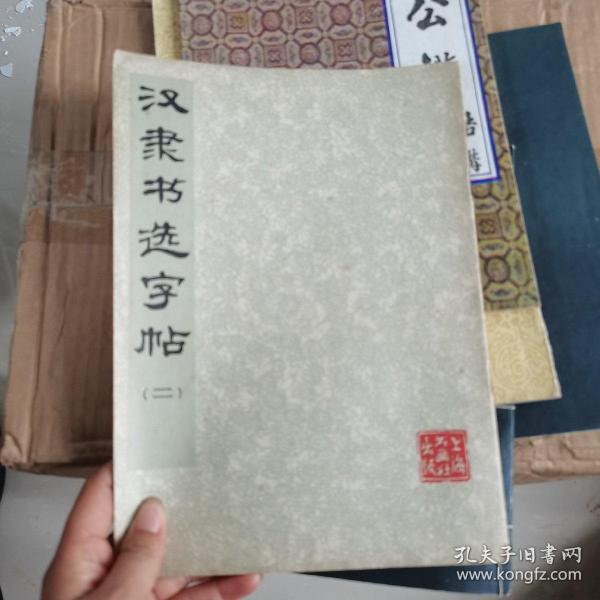 汉隶书选字帖
（二）
上海
书画社
出版
公
孔夫子旧书网
www.kongfz.com